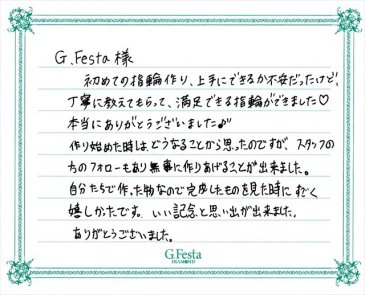 G.Festa 様
初めての指輪作り、上手にできるか不安だったけど、
丁寧に教えてもらって、満足できる指輪ができました♡
本当にありがとうございました♪"
作り始めた時は、どうなることかと思ったのですが、スタッフの
方のフォローもあり無事に作りあげることが出来ました。
自分たちで作った物なので完成したものを見た時にすごく
嬉しかったです。いい記念と思い出が出来ました。
ありがとうございました。
G.Festa
DIAMOND